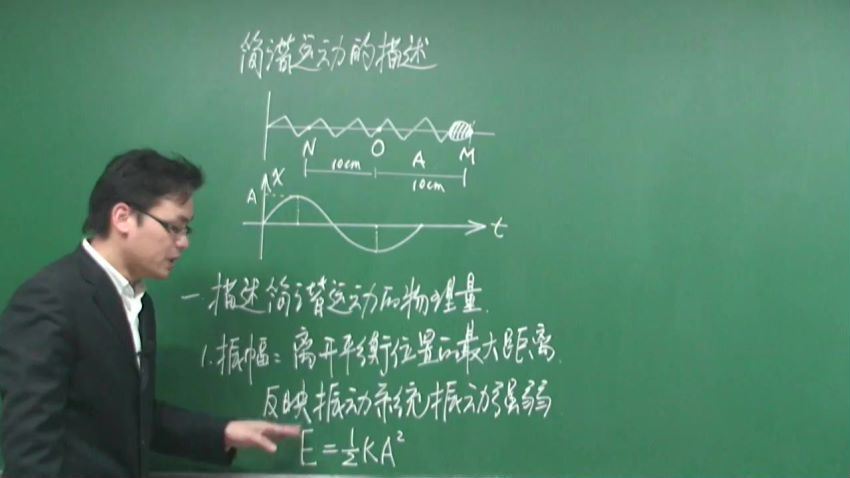 简谐运动的描述
N O A M
10cm 10cm
A x
t
一.描述简谐运动的物理量.
1.振幅：离开平衡位置的最大距离.
反映振动系统振动强弱
E=½KA²